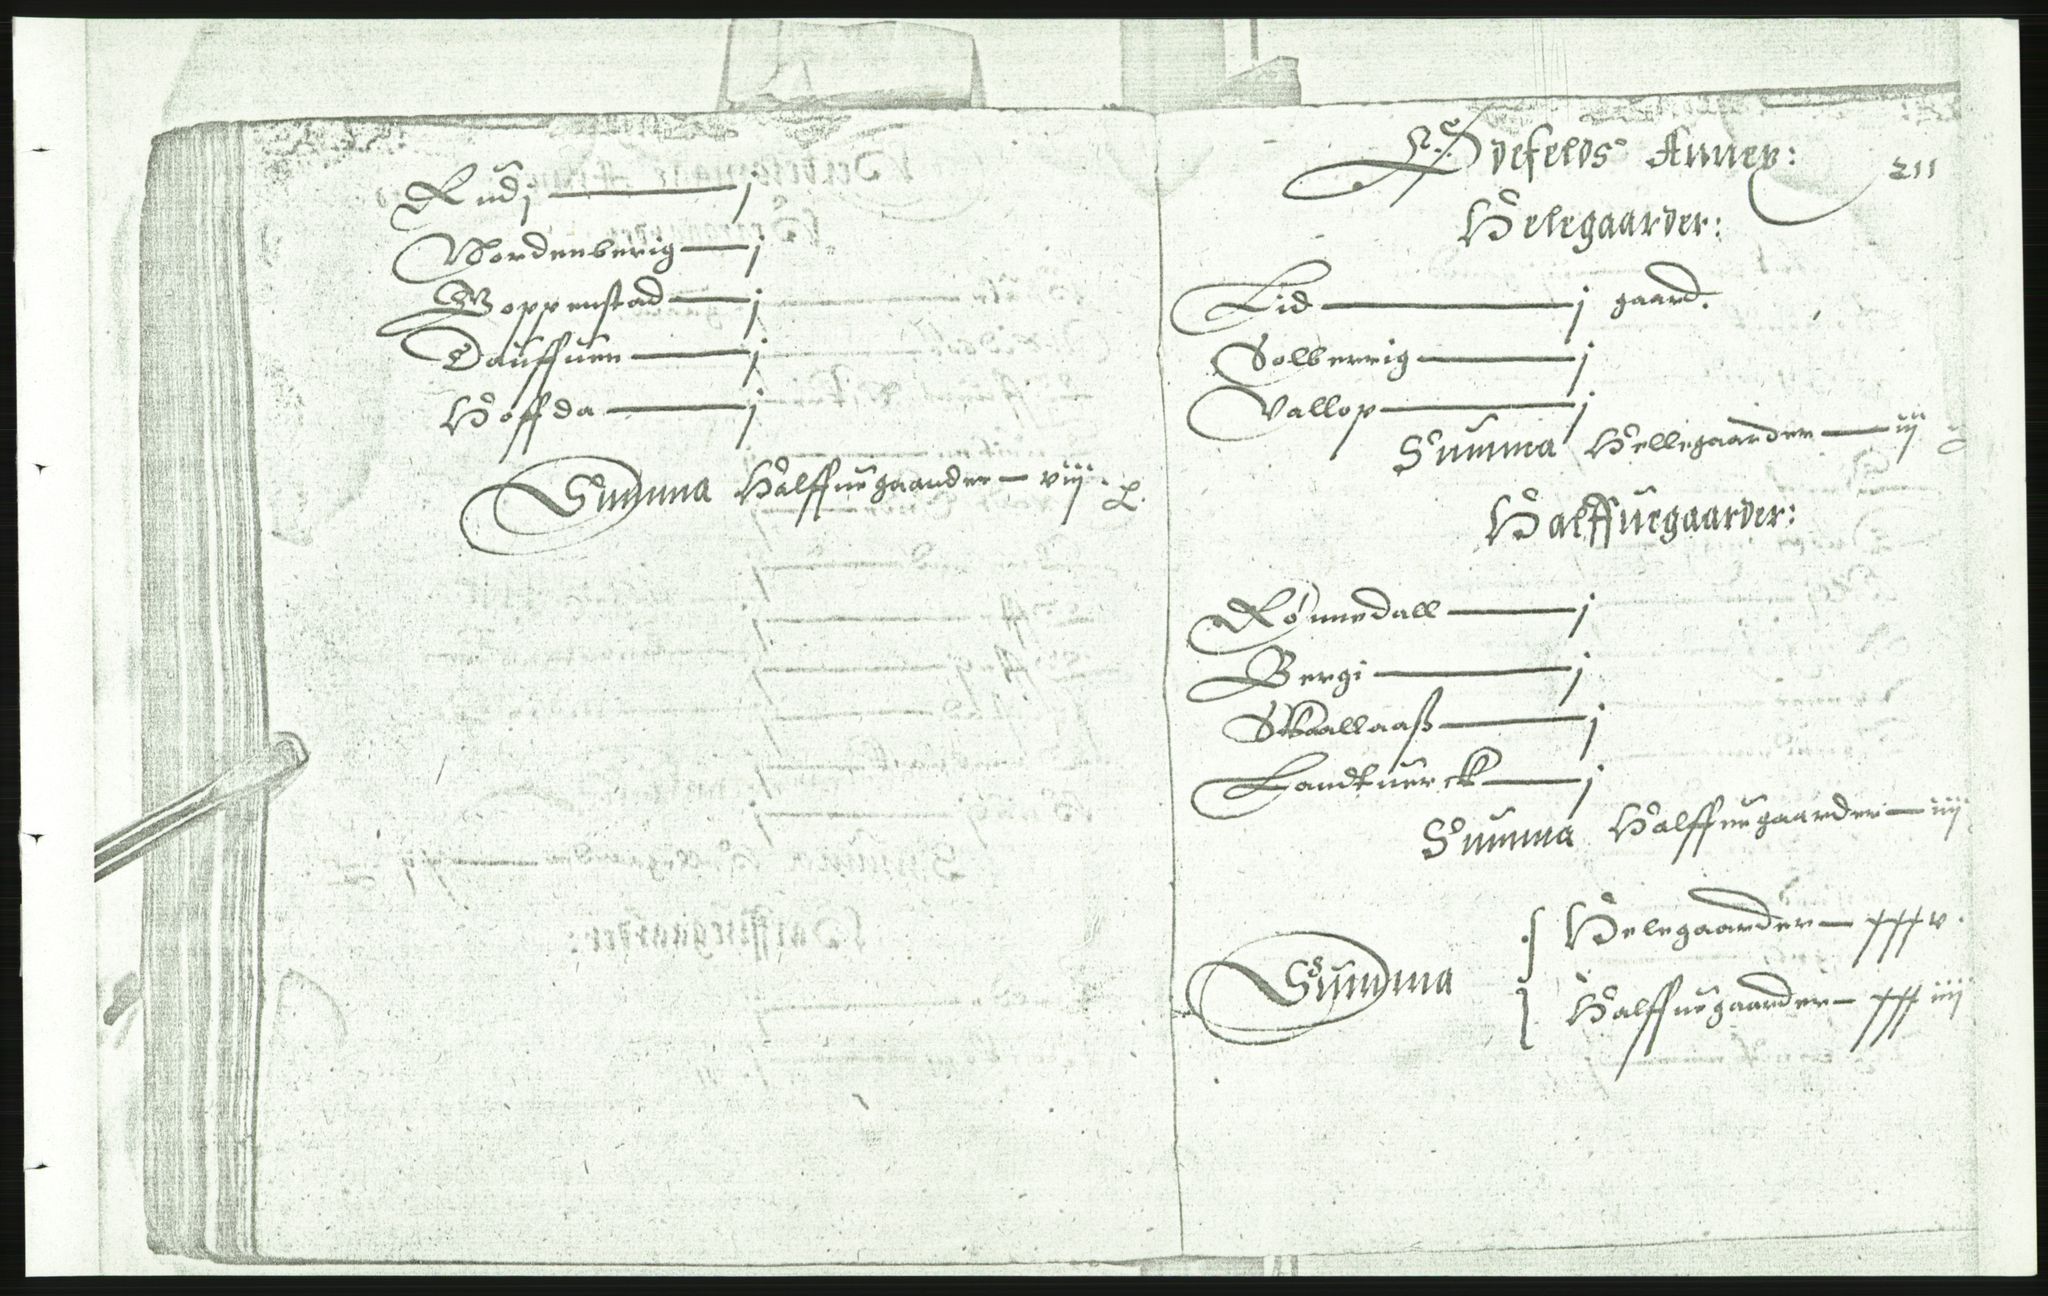 Rudj — j
Nordenberig — j
Goppenstad — j
Dauffuen — j
Hoffda — j
Summa Halffuegaarder — viij.
Ødefelds Annex:
211
Helegaarder:
Lid — j gaard.
Solberrig — j
Vallop — j
Summa Hellegaarder — iij
Halffuegaarder:
Rønnedall — j
Bergi — j
Skaallaaß — j
Landtuerck — j
Summa Halffuegaarder — iiij
Summa
Helegaarder — xxxv.
Halffuegaarder — xxxiiij